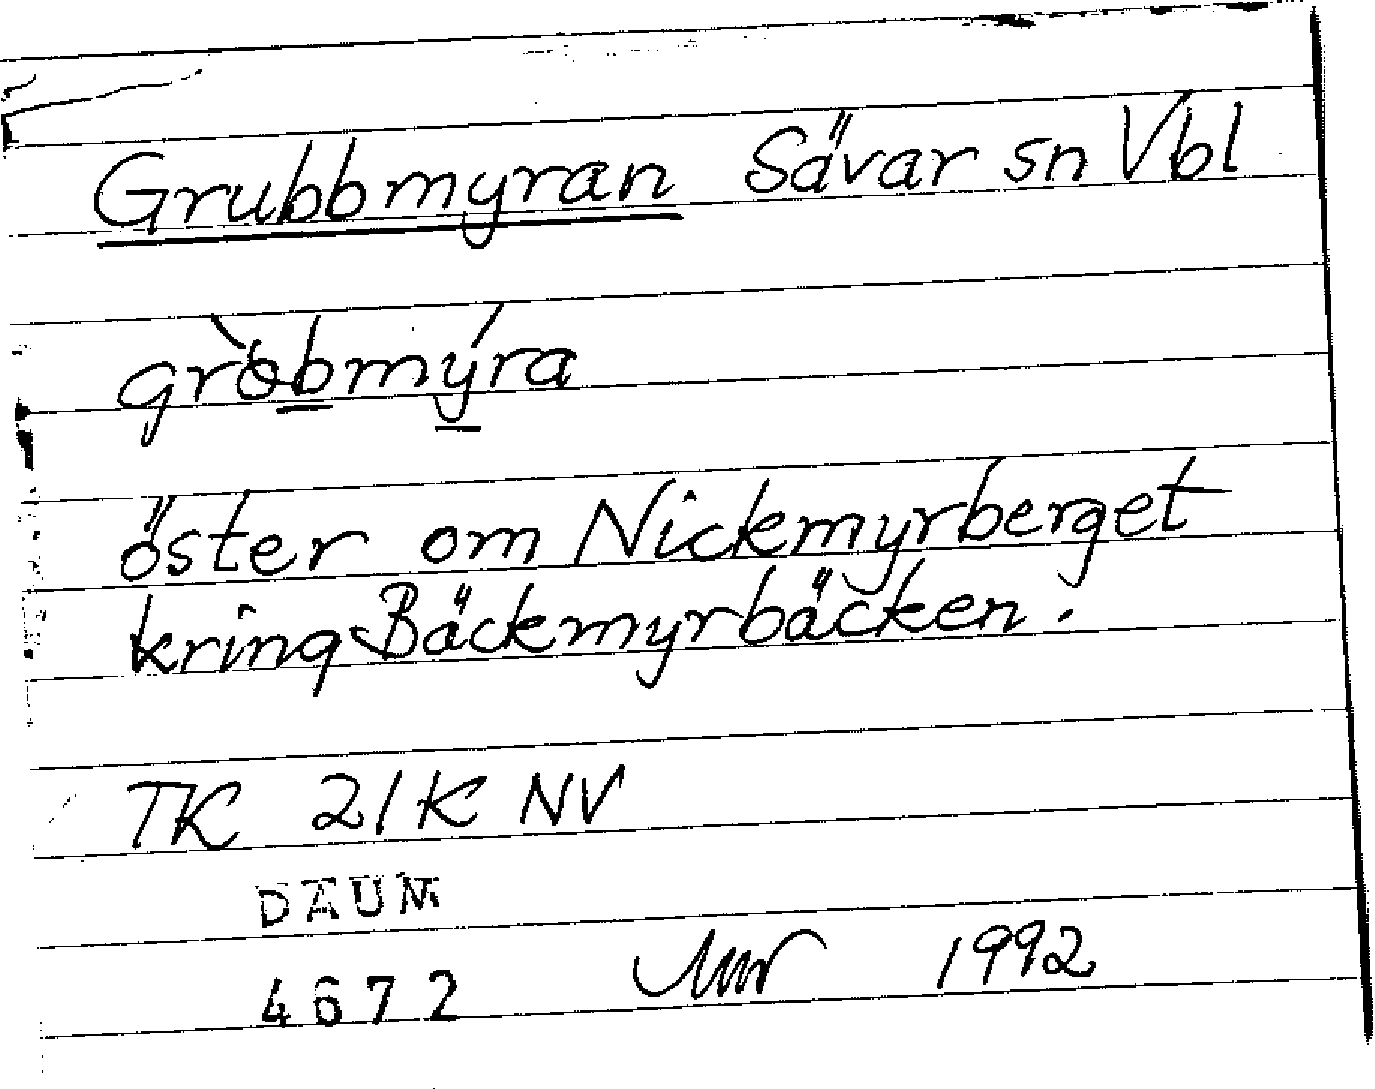 Grubbmyran Sävar sn Vbl
gròbmýra
öster om Nickmyrberget
kring Bäckmyrbäcken.
TK 21K NV
DAUM
4672 1992